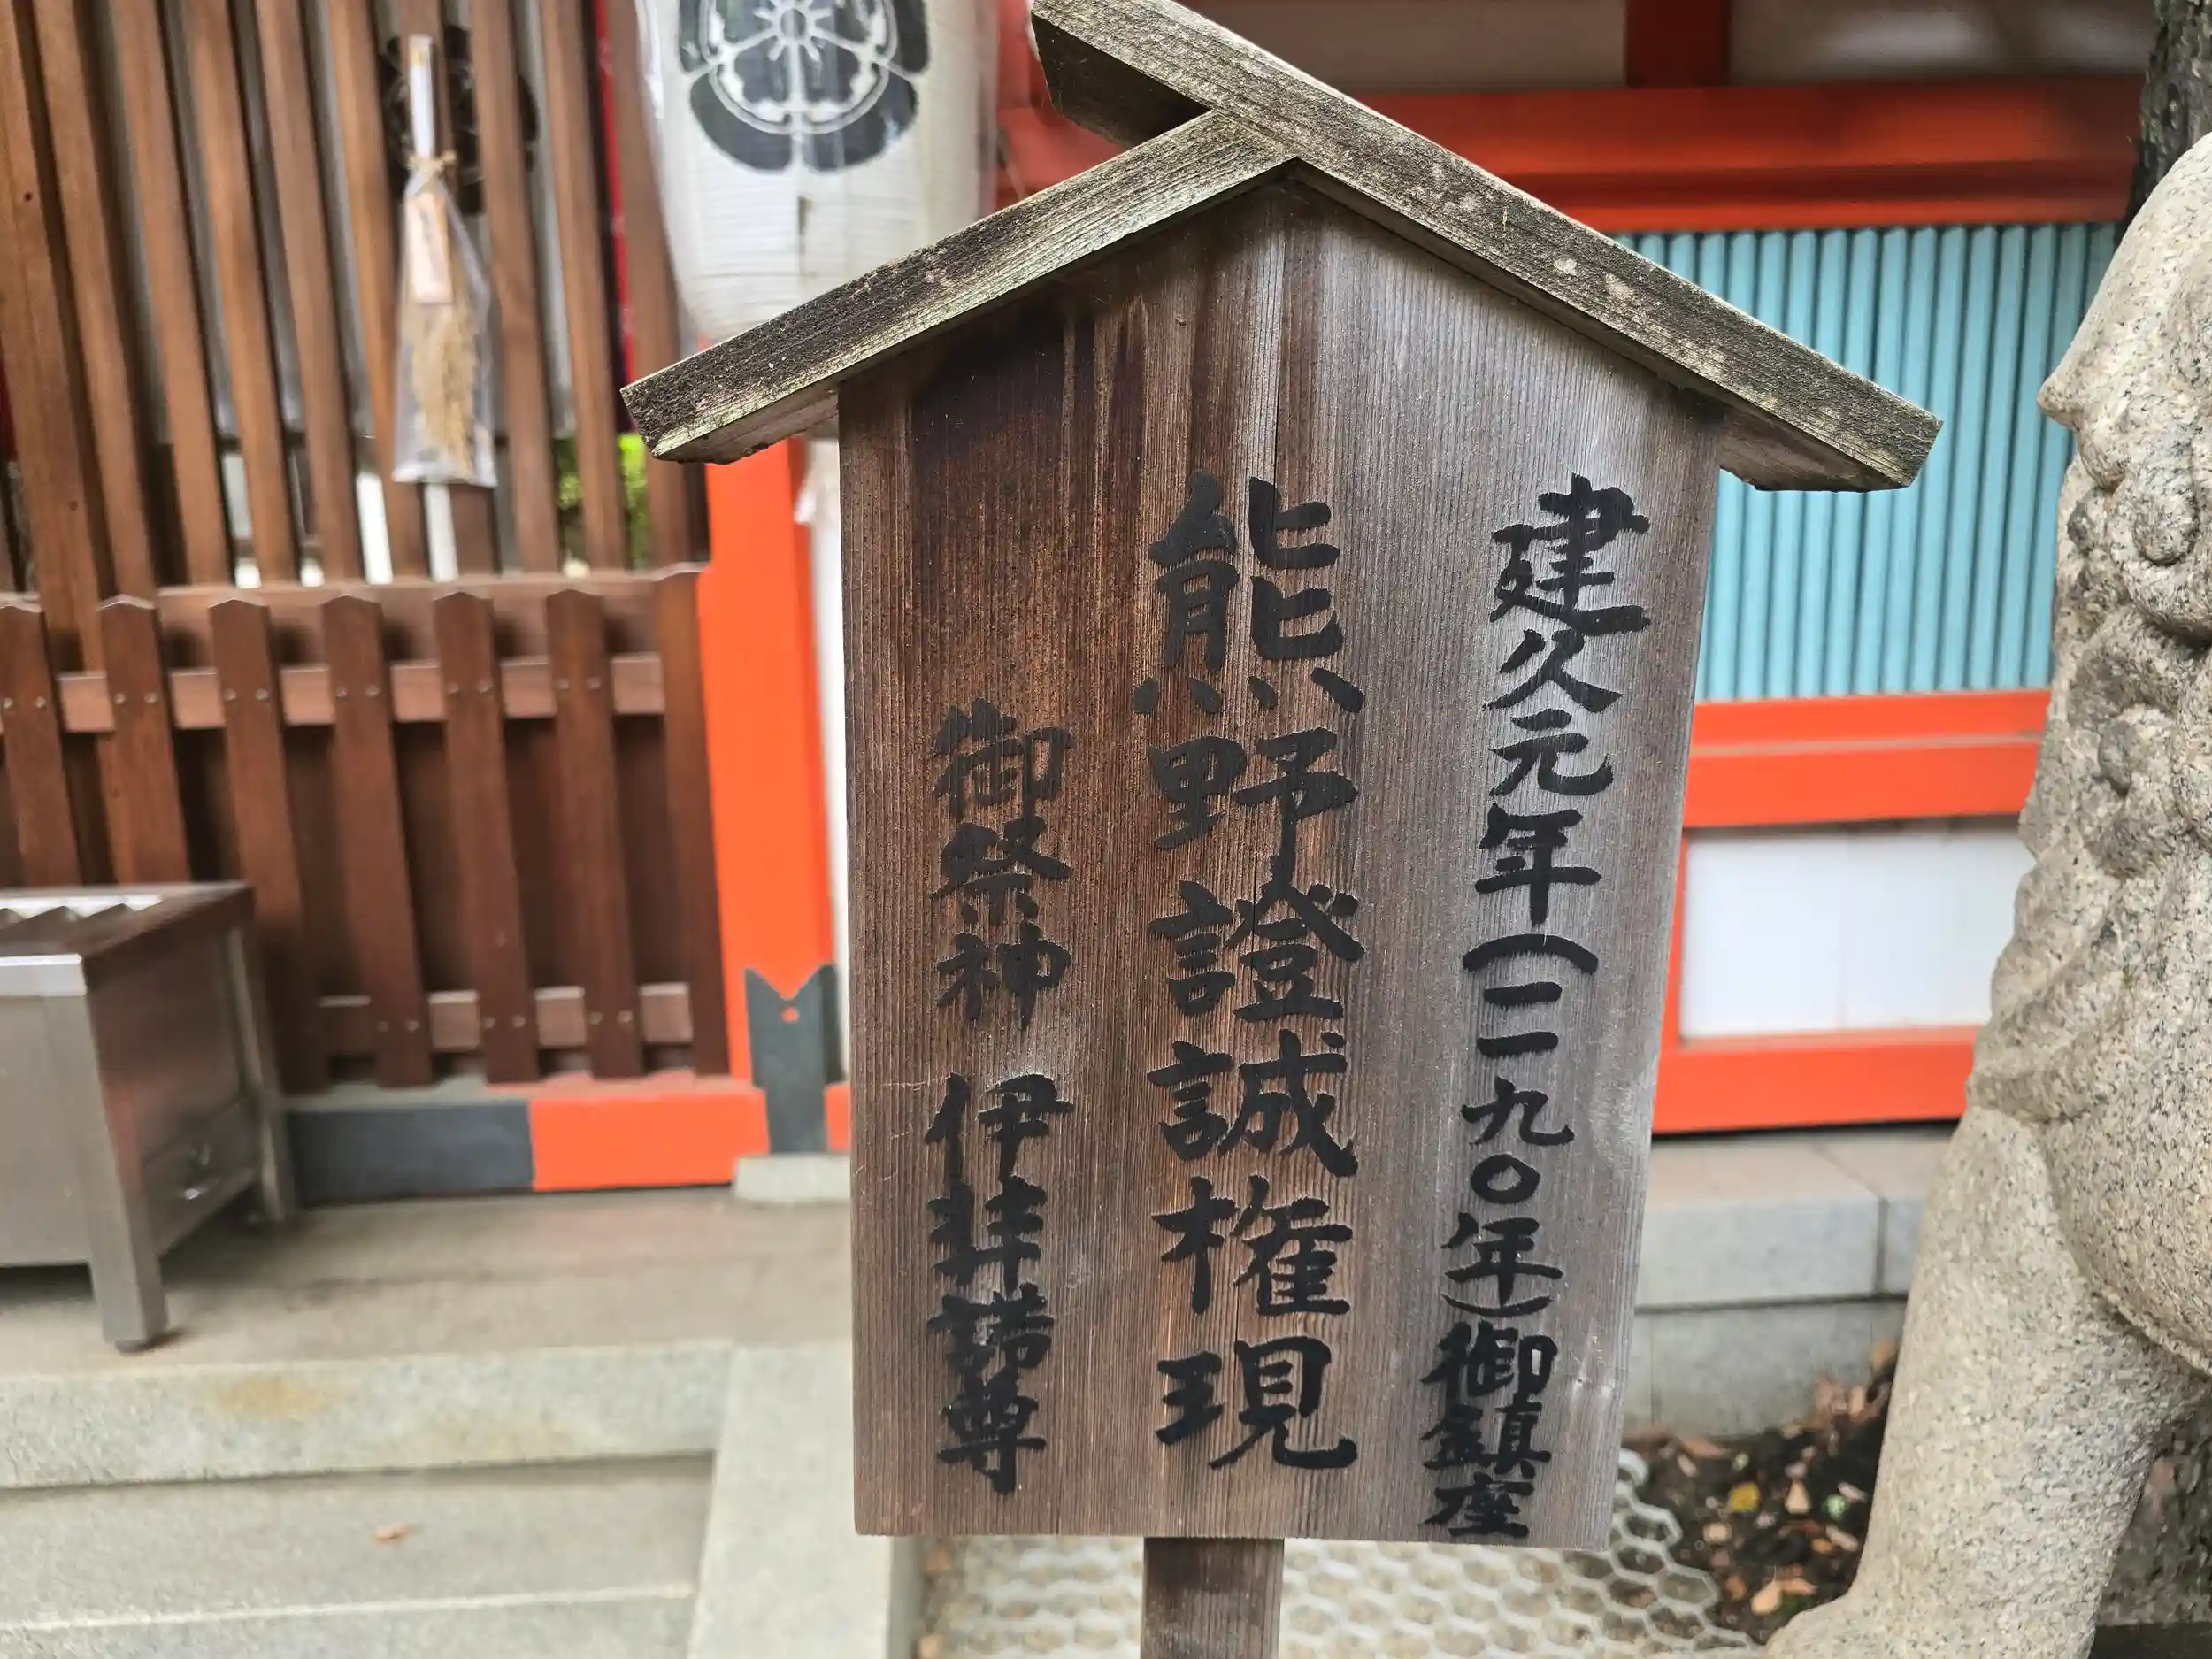 建久元年(一一九〇年)御鎮座
熊野證誠権現
御祭神 伊弉諾尊